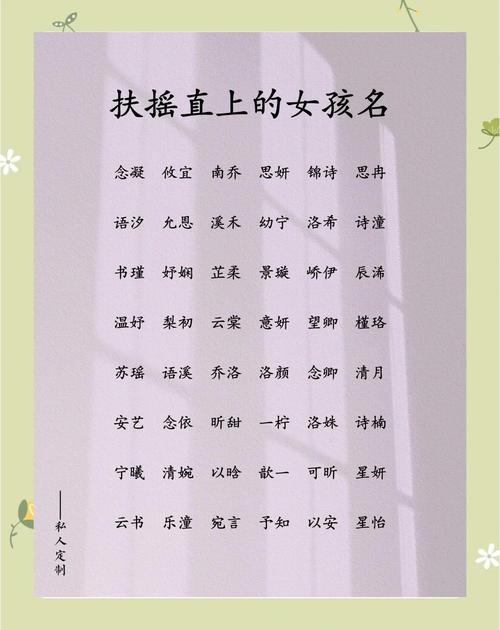 扶摇直上的女孩名
念凝 攸宜 南乔 思妍 锦诗 思冉
语汐 允恩 溪禾 幼宁 洛希 诗潼
书瑾 妤娴 芷柔 景璇 峤伊 辰浠
温妤 梨初 云棠 意妍 望卿 槿珞
苏瑶 语溪 乔洛 洛颜 念卿 清月
安艺 念依 昕甜 一柠 洛姝 诗楠
宁曦 清婉 以晗 歆一 可昕 星妍
云书 乐潼 宛言 予知 以安 星怡
——私人定制